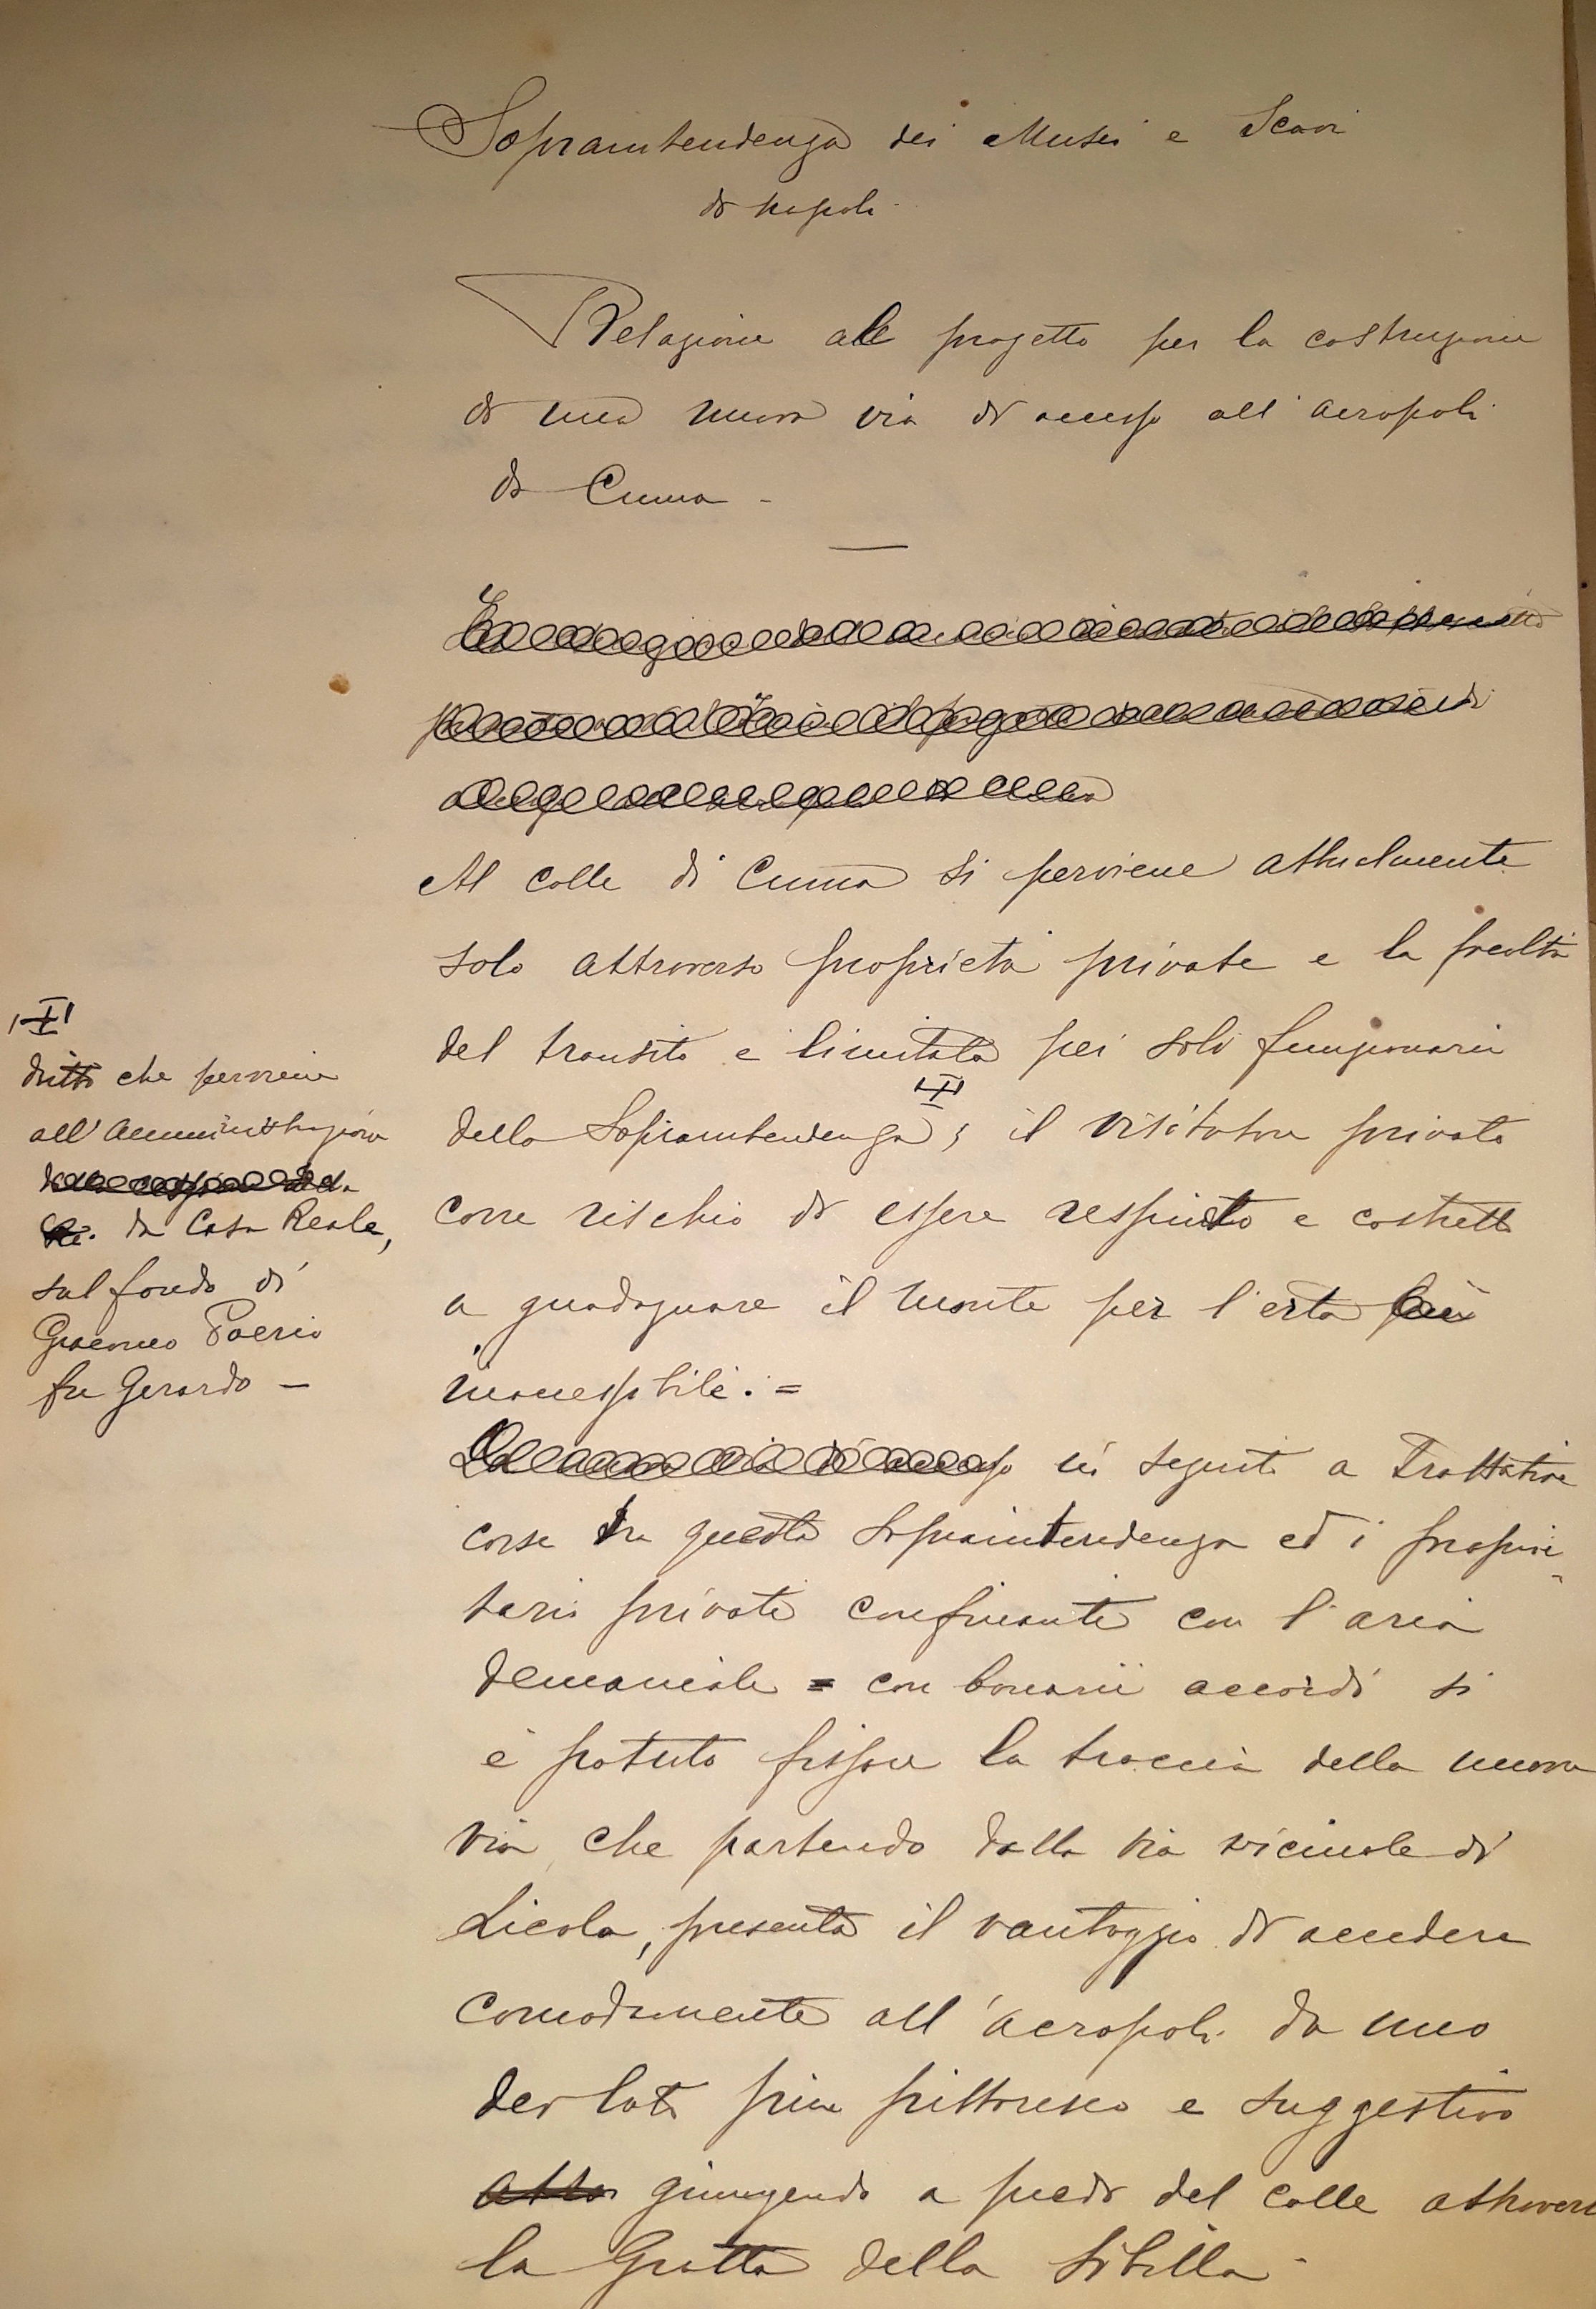 Sopraintendenza dei Musei e Scavi
di Napoli
Relazione al progetto per la costruzione
di una nuova via di accesso all'acropoli
di Cuma -
Al colle di Cuma si perviene attualmente
solo attraverso proprietà private e la facoltà
del transito è limitata pei soli funzionarii
della Sopraintendenza; il visitatore privato
corre rischio di essere respinto e costretto
a guadagnare il monte per l'erta
inaccessibile. =
in seguito a trattative
corse tra questa Sopraintendenza ed i proprie-
tarii privati confinanti con l'area
demaniale = con bonarii accordi si
è potuto fissare la traccia della nuova
via che partendo dalla via vicinale di
Licola, presenta il vantaggio di accedere
comodamente all'acropoli da uno
dei lati più pittoresco e suggestivo
giungendo a piedi del colle attraverso
la Grotta della Sibilla -
dritto che perviene
all'Amministrazione
da Casa Reale,
sul fondo di
Giacomo Poerio
fu Gerardo -